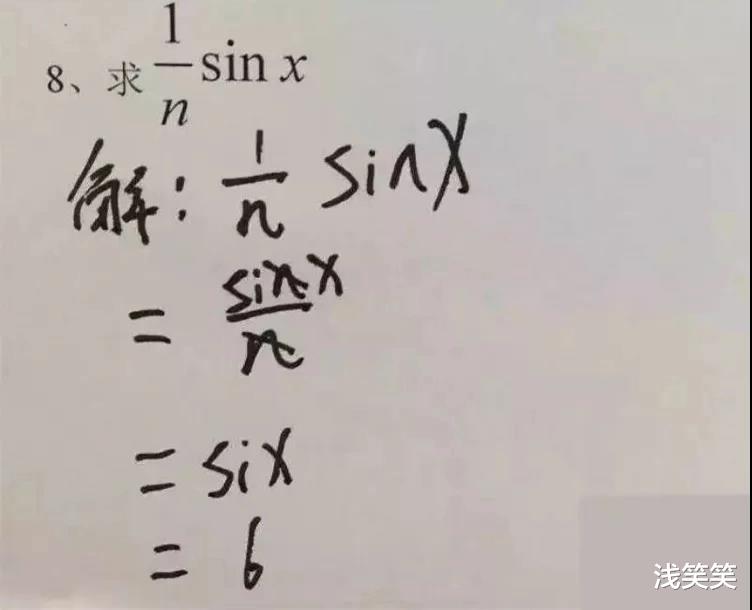 8、求 1/n sin x
解: 1/n sinx
= sinx/n
= six
= 6
浅笑笑